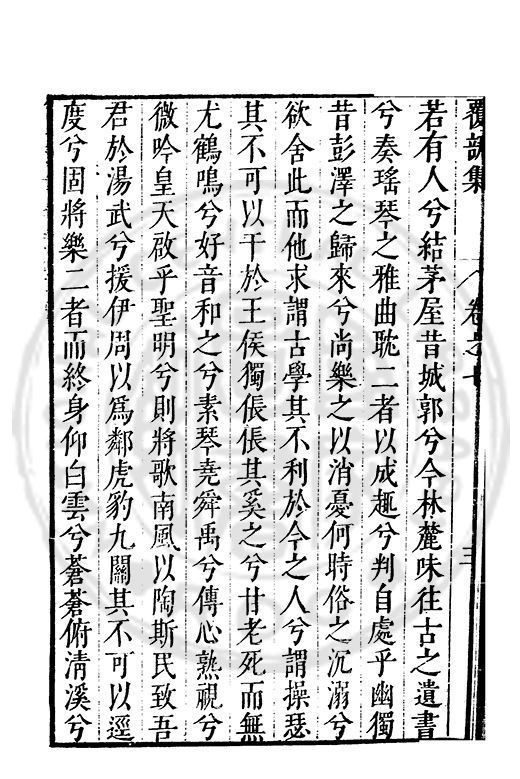 覆瓿集　卷之七　三
若有人兮結茅屋昔城郭兮今林麓味往古之遺書
兮奏瑤琴之雅曲耽二者以成趣兮判自處乎幽獨
昔彭澤之歸來兮尚樂之以消憂何時俗之沉溺兮
欲舍此而他求謂古學其不利於今之人兮謂操瑟
其不可以干於王侯獨倀倀其奚之兮甘老死而無
尤鶴鳴兮好音和之兮素琴堯舜禹兮傳心熟視兮
微吟皇天啟乎聖明兮則將歌南風以陶斯民致吾
君於湯武兮援伊周以爲鄰虎豹九關其不可以逕
度兮固將樂二者而終身仰白雲兮蒼蒼俯清溪兮